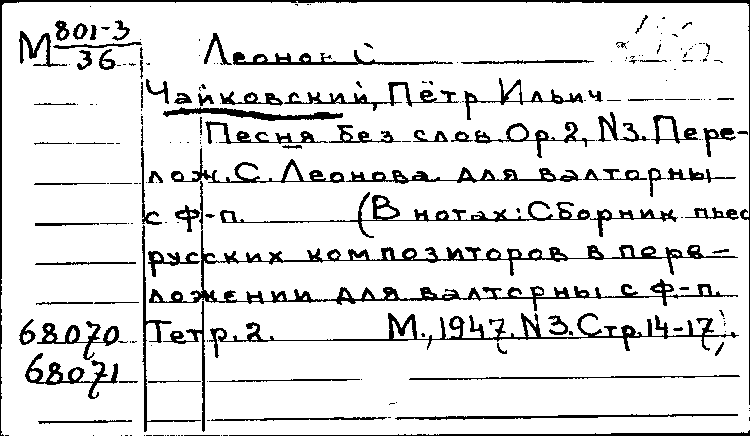 М 801-3
36
Леонов С
Чайковский, Пётр Ильич
Песня без слов. Ор. 2, N3. Пере-
лож. С. Леонова для валторны
с ф-п. (В нотах: Сборник пьес
русских композиторов в пере-
ложении для валторны с ф-п.
68070 Тетр. 2. М., 1947. N3. Стр. 14-17).
68071